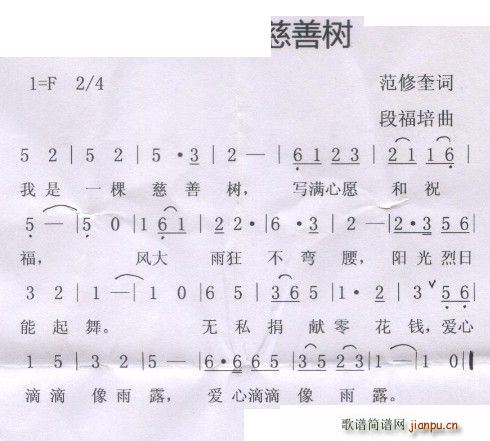 慈善树
1=F 2/4 范修奎词
段福培曲
5 2 | 5 2 | 5 · 3 | 2 — | 6 1 2 3 | 2 1 1 6 |
我是 一棵 慈善树， 写满心愿 和祝
5 — | 5 0 | 1 6 1 | 2 2 · | 6 · 3 | 2 — | 2 · 3 5 6 |
福， 风大 雨狂 不弯腰，阳光烈日
3 2 | 1 — | 1 0 | 6 5 | 3 6 5 | 1 · 2 | 3 ∨ 5 6 |
能起舞。 无私捐献零花钱，爱心
1 5 | 3 2 | 5 — | 6 · 6 6 5 | 3 5 2 3 | 1 — | 1 0 ‖
滴滴像雨露， 爱心滴滴像雨露。
歌谱简谱网
jianpu.cn